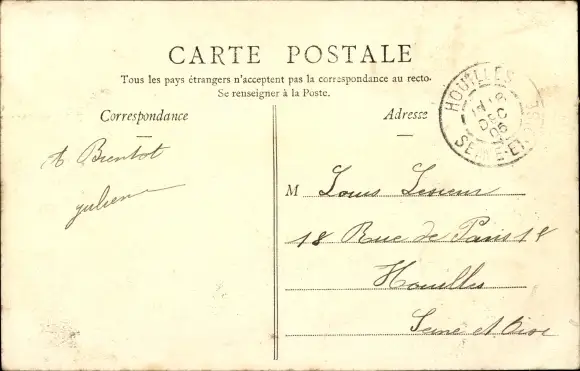 CARTE POSTALE
Tous les pays étrangers n'acceptent pas la correspondance au recto.
Se renseigner à la Poste.
Correspondance
Adresse
HOUILLES
SEINE-ET-OISE
A Bientot
Julien
M Louis
18 Rue de Paris 18
Houilles
Seine et Oise